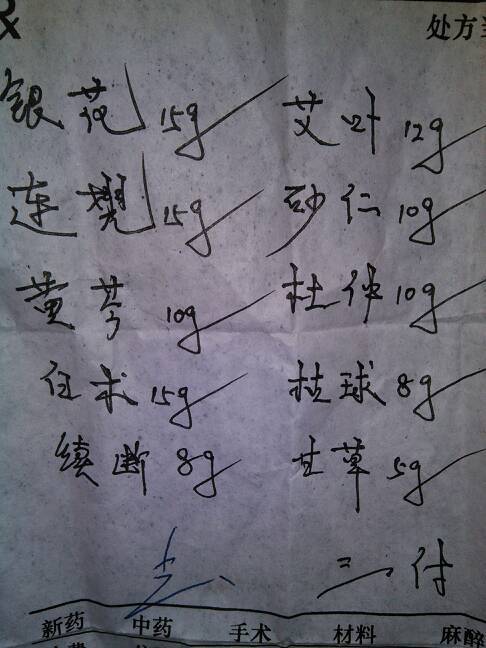 处方
银花 15g 艾叶 12g
连翘 15g 砂仁 10g
黄芩 10g 杜仲 10g
白术 15g 桔梗 8g
续断 8g 甘草 5g
二付
新药 中药 手术 材料 麻醉